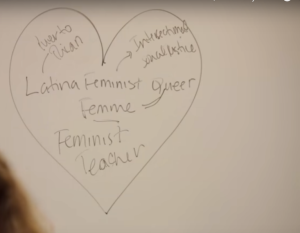 Puerto
Rican
Intersectional
Latina Feminist queer
Femme
Feminist
Teacher